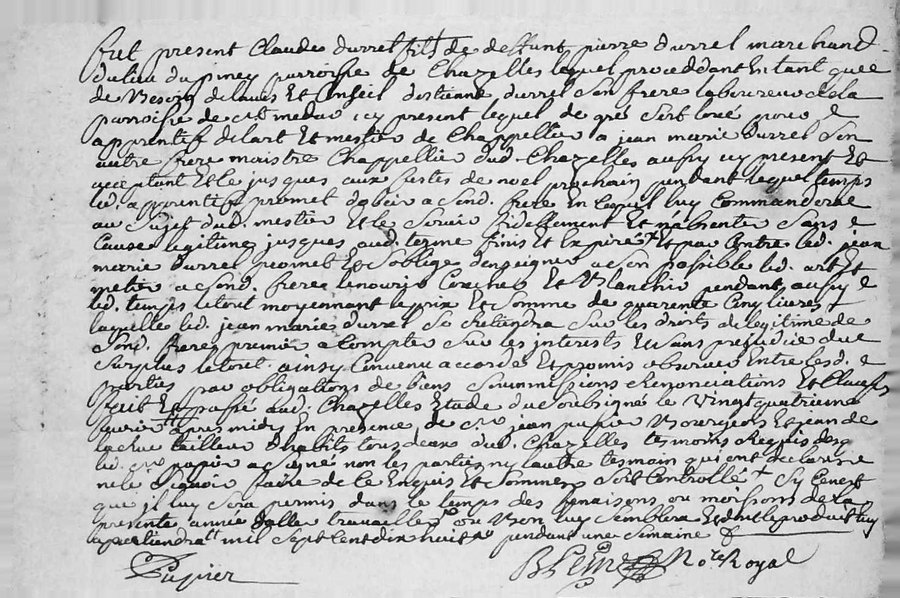 fut present Claude durret fils de deffunt pierre durrel marchand
du lieu du piney parroisse de Chazelles lequel proceddant En tant que
de Besoin de lavis Et Conseil d'estienne durrel Son frere laboureur de la
parroisse de st medar icy present lequel de gré Sest loué pour
apprentif de lart Et mestier de Chappellier a jean marie durrel Son
autre frere maistre Chappellier dud. Chazelles aussy icy present Et
acceptant Et le jusques aux festes de noel prochain pendant lequel temps
led. apprentif promet dobeir a Sond. frere En Ce quil luy Commandera
au Sujet dud. mestier Et le Servir fidellement Et n'absenter Sans
Cause legitime jusques aud. terme finis Et Expiré Et par Contre led. jean
marie durrel promet Et Soblige denseigner a Son possible led. art Et
metier a Sond. frere le nourrir Coucher Et Blanchir pendant aussy
led. temps le tout moyennant le prix Et Somme de quarente Cinq livres
laquelle led. jean marie durrel Se Retiendra Sur les droits de legitime de
Sond. frere premier a Compter Sur les interests Et Sans prejudice du
Surplus le tout ainsy Convenu accordé Et promis observer Entre lesd.
parties par obligations de biens Soummissions Renonciations Et Clauses
fait Et passé aud. Chazelles Etude du Soubsigné le Vingt quatrieme
apres midy En presence de jean pupier Bourgeois Et jean
tailleur dhabits tous deux dud. Chazelles tesmoins Requis
led. pupier a Signé non les parties ny lautre tesmoin qui ont declaré ne
le Sçavoir faire de Ce Enquis Et Sommes Sera Controllé Sy Cenest
qui il luy Sera permis dans le temps des fenaisons ou moissons de la
presente année daller travailler ou Bon luy Semblera Et dont le produit luy
apartiendra mil Sept Cent dix huit pendant une Semaine
Pupier
No.re Royal